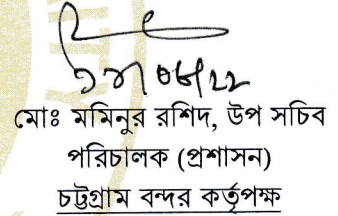 মোঃ মমিনুর রশিদ, উপ সচিব
পরিচালক (প্রশাসন)
চট্টগ্রাম বন্দর কর্তৃপক্ষ